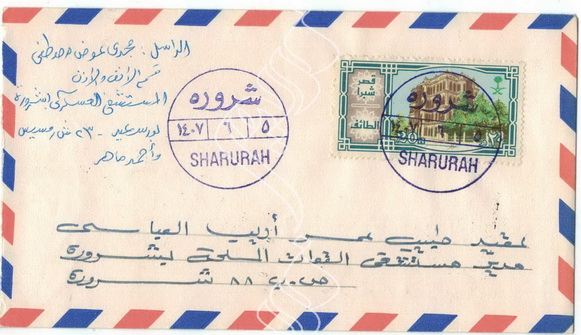 الراسل: مجدى عوض مصطفى
قسم الأنف والأذن
المستشفى العسكرى بشروره
بورسعيد - ٢٣ ش رمسيس
وأحمد ماهر
شروره
١٤٠٧ ٦ ٥
SHARURAH
قصر
شبرا
الطائف
شروره
١٤٠٧ ٦ ٥
SHARURAH
طبيب
أديب العباسى
مدير مستشفى القوات المسلحة بشرورة
ص.ب ٨٨ شرورة